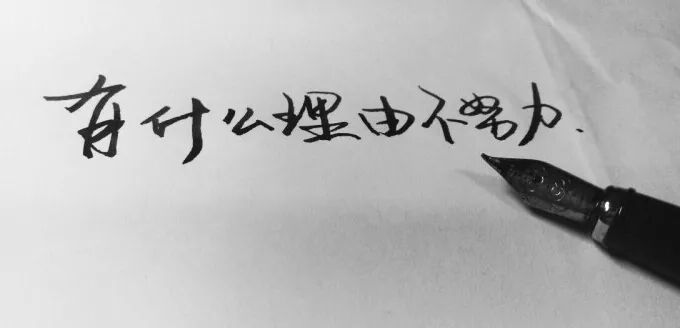 有什么理由不努力.